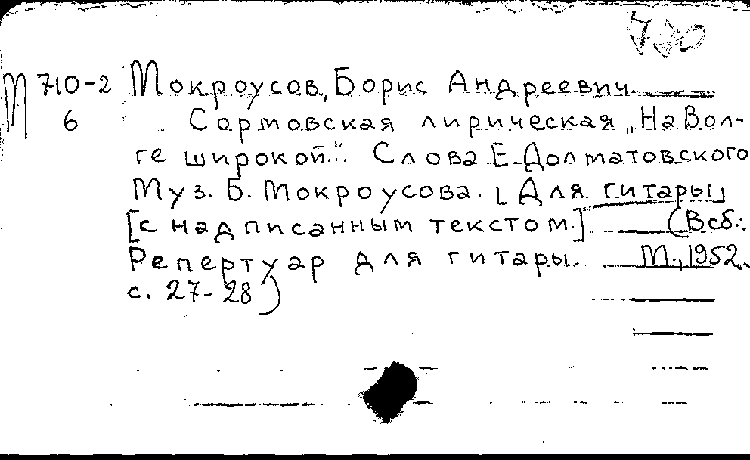 М 710-2 Мокроусов, Борис Андреевич
6 Сормовская лирическая „На Вол-
ге широкой". Слова Е. Долматовского
Муз. Б. Мокроусова. [Для гитары]
[с надписанным текстом.] (В сб.:
Репертуар для гитары. М., 1952.
с. 27-28)